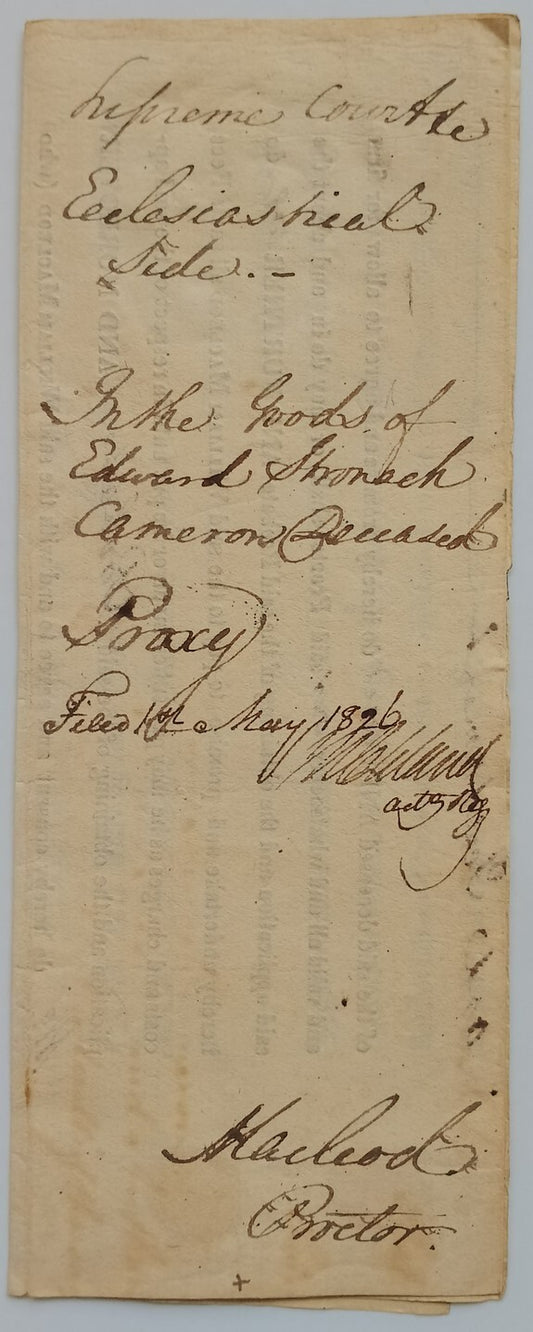 Supreme Court
Ecclesiastical
Side. -
In the Goods of
Edward Stronach
Cameron Deceased
Proxy
Filed 1st May 1826
actg Reg
Macleod
Proctor.